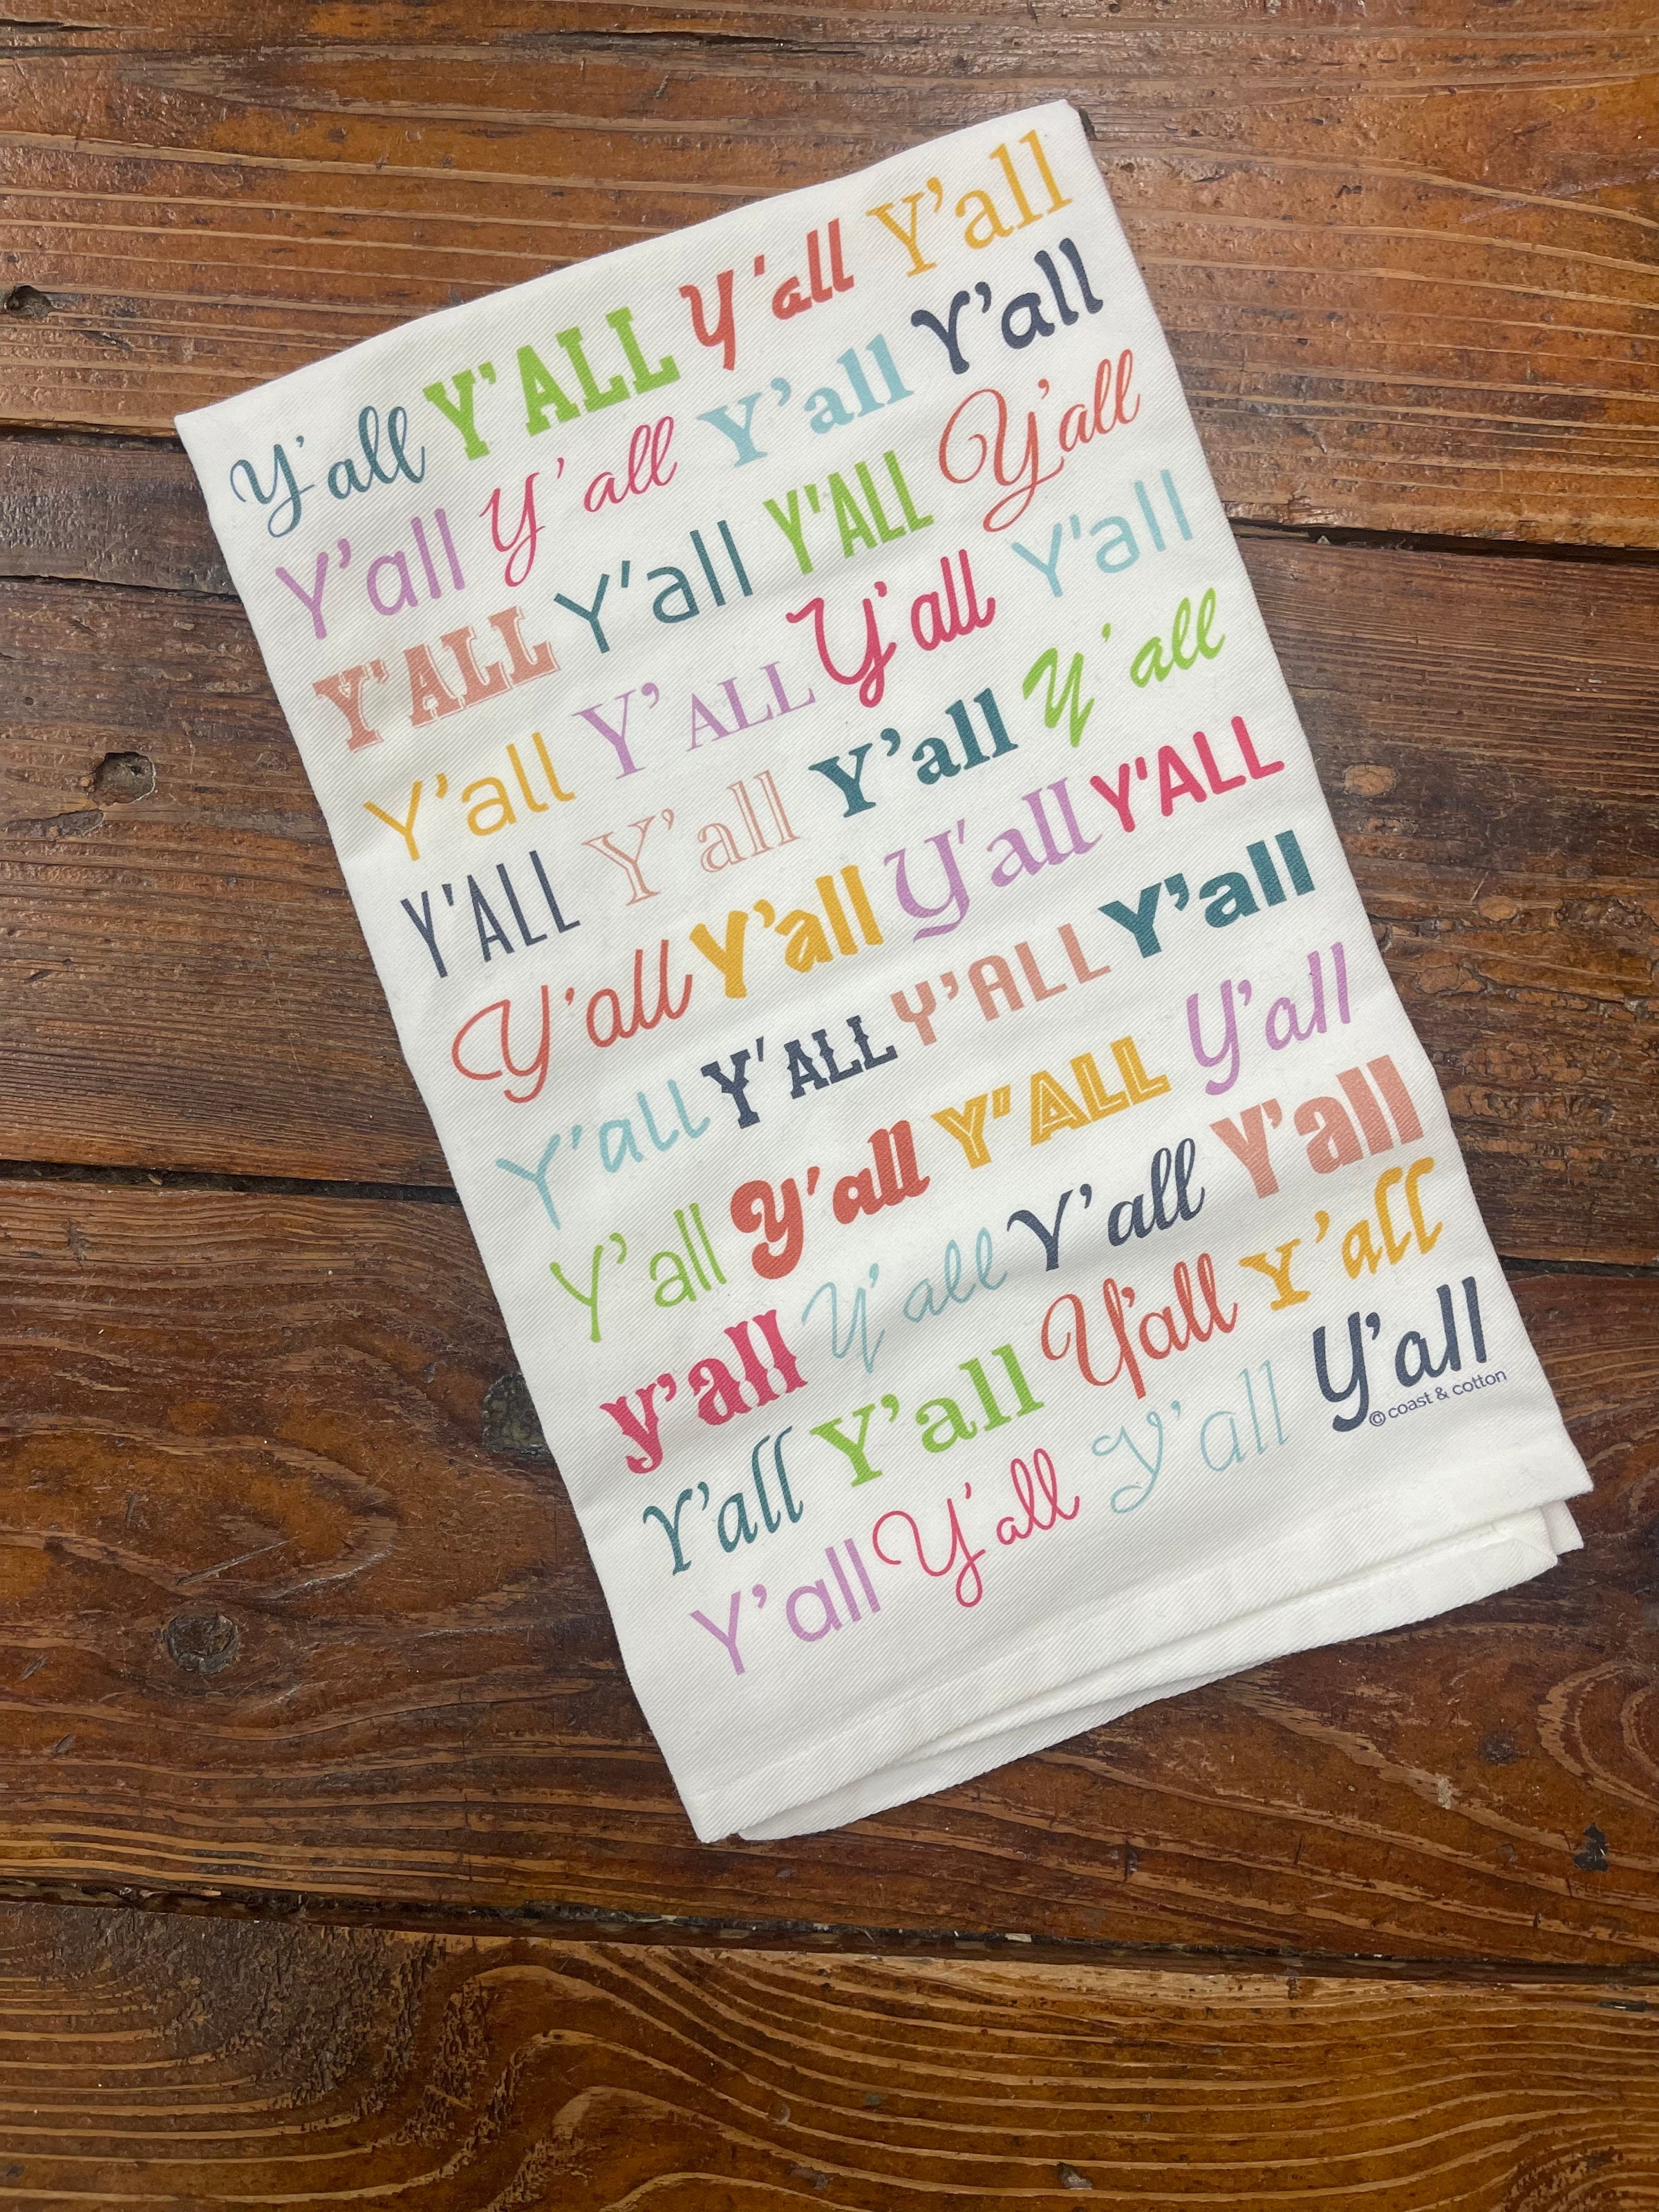 Y'all Y'ALL Y'all Y'all
Y'all Y'all Y'all Y'all
Y'ALL Y'all Y'ALL Y'all
Y'all Y'ALL Y'all Y'all
Y'ALL Y'all Y'all Y'all
Y'all Y'all Y'all Y'ALL
Y'all Y'ALL Y'ALL Y'all
Y'all Y'all Y'ALL Y'all
y'all Y'all Y'all Y'all
Y'all Y'all Y'all Y'all
Y'all Y'all Y'all Y'all
© coast & cotton